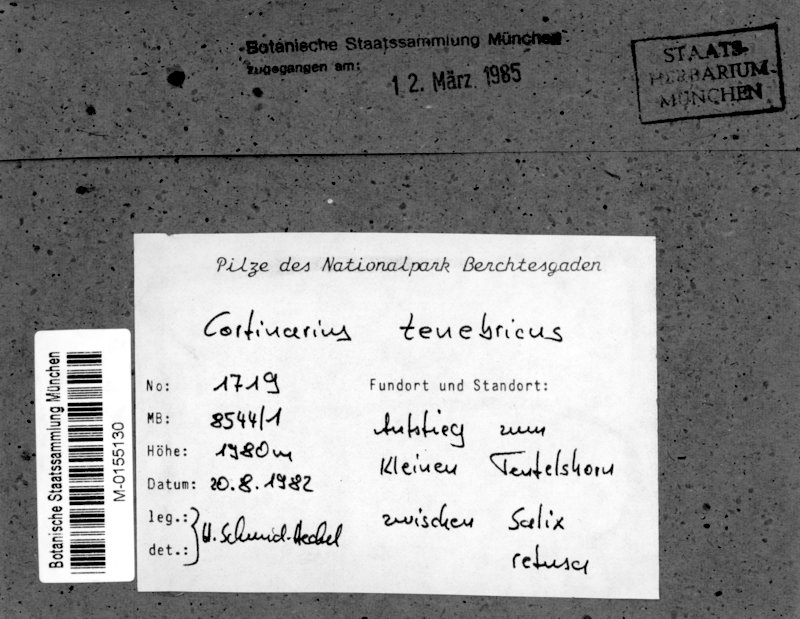 Botanische Staatssammlung München
zugegangen am:
12. März 1985
STAATS-
HERBARIUM
MÜNCHEN
Pilze des Nationalpark Berchtesgaden
Cortinarius tenebricus
No: 1719
MB: 8544/1
Höhe: 1980m
Datum: 20.8.1982
leg.:
det.:
H. Schmid-Heckel
Fundort und Standort:
Aufstieg zum
Kleinen Teufelshorn
zwischen Salix
retusa
Botanische Staatssammlung München
M-0155130